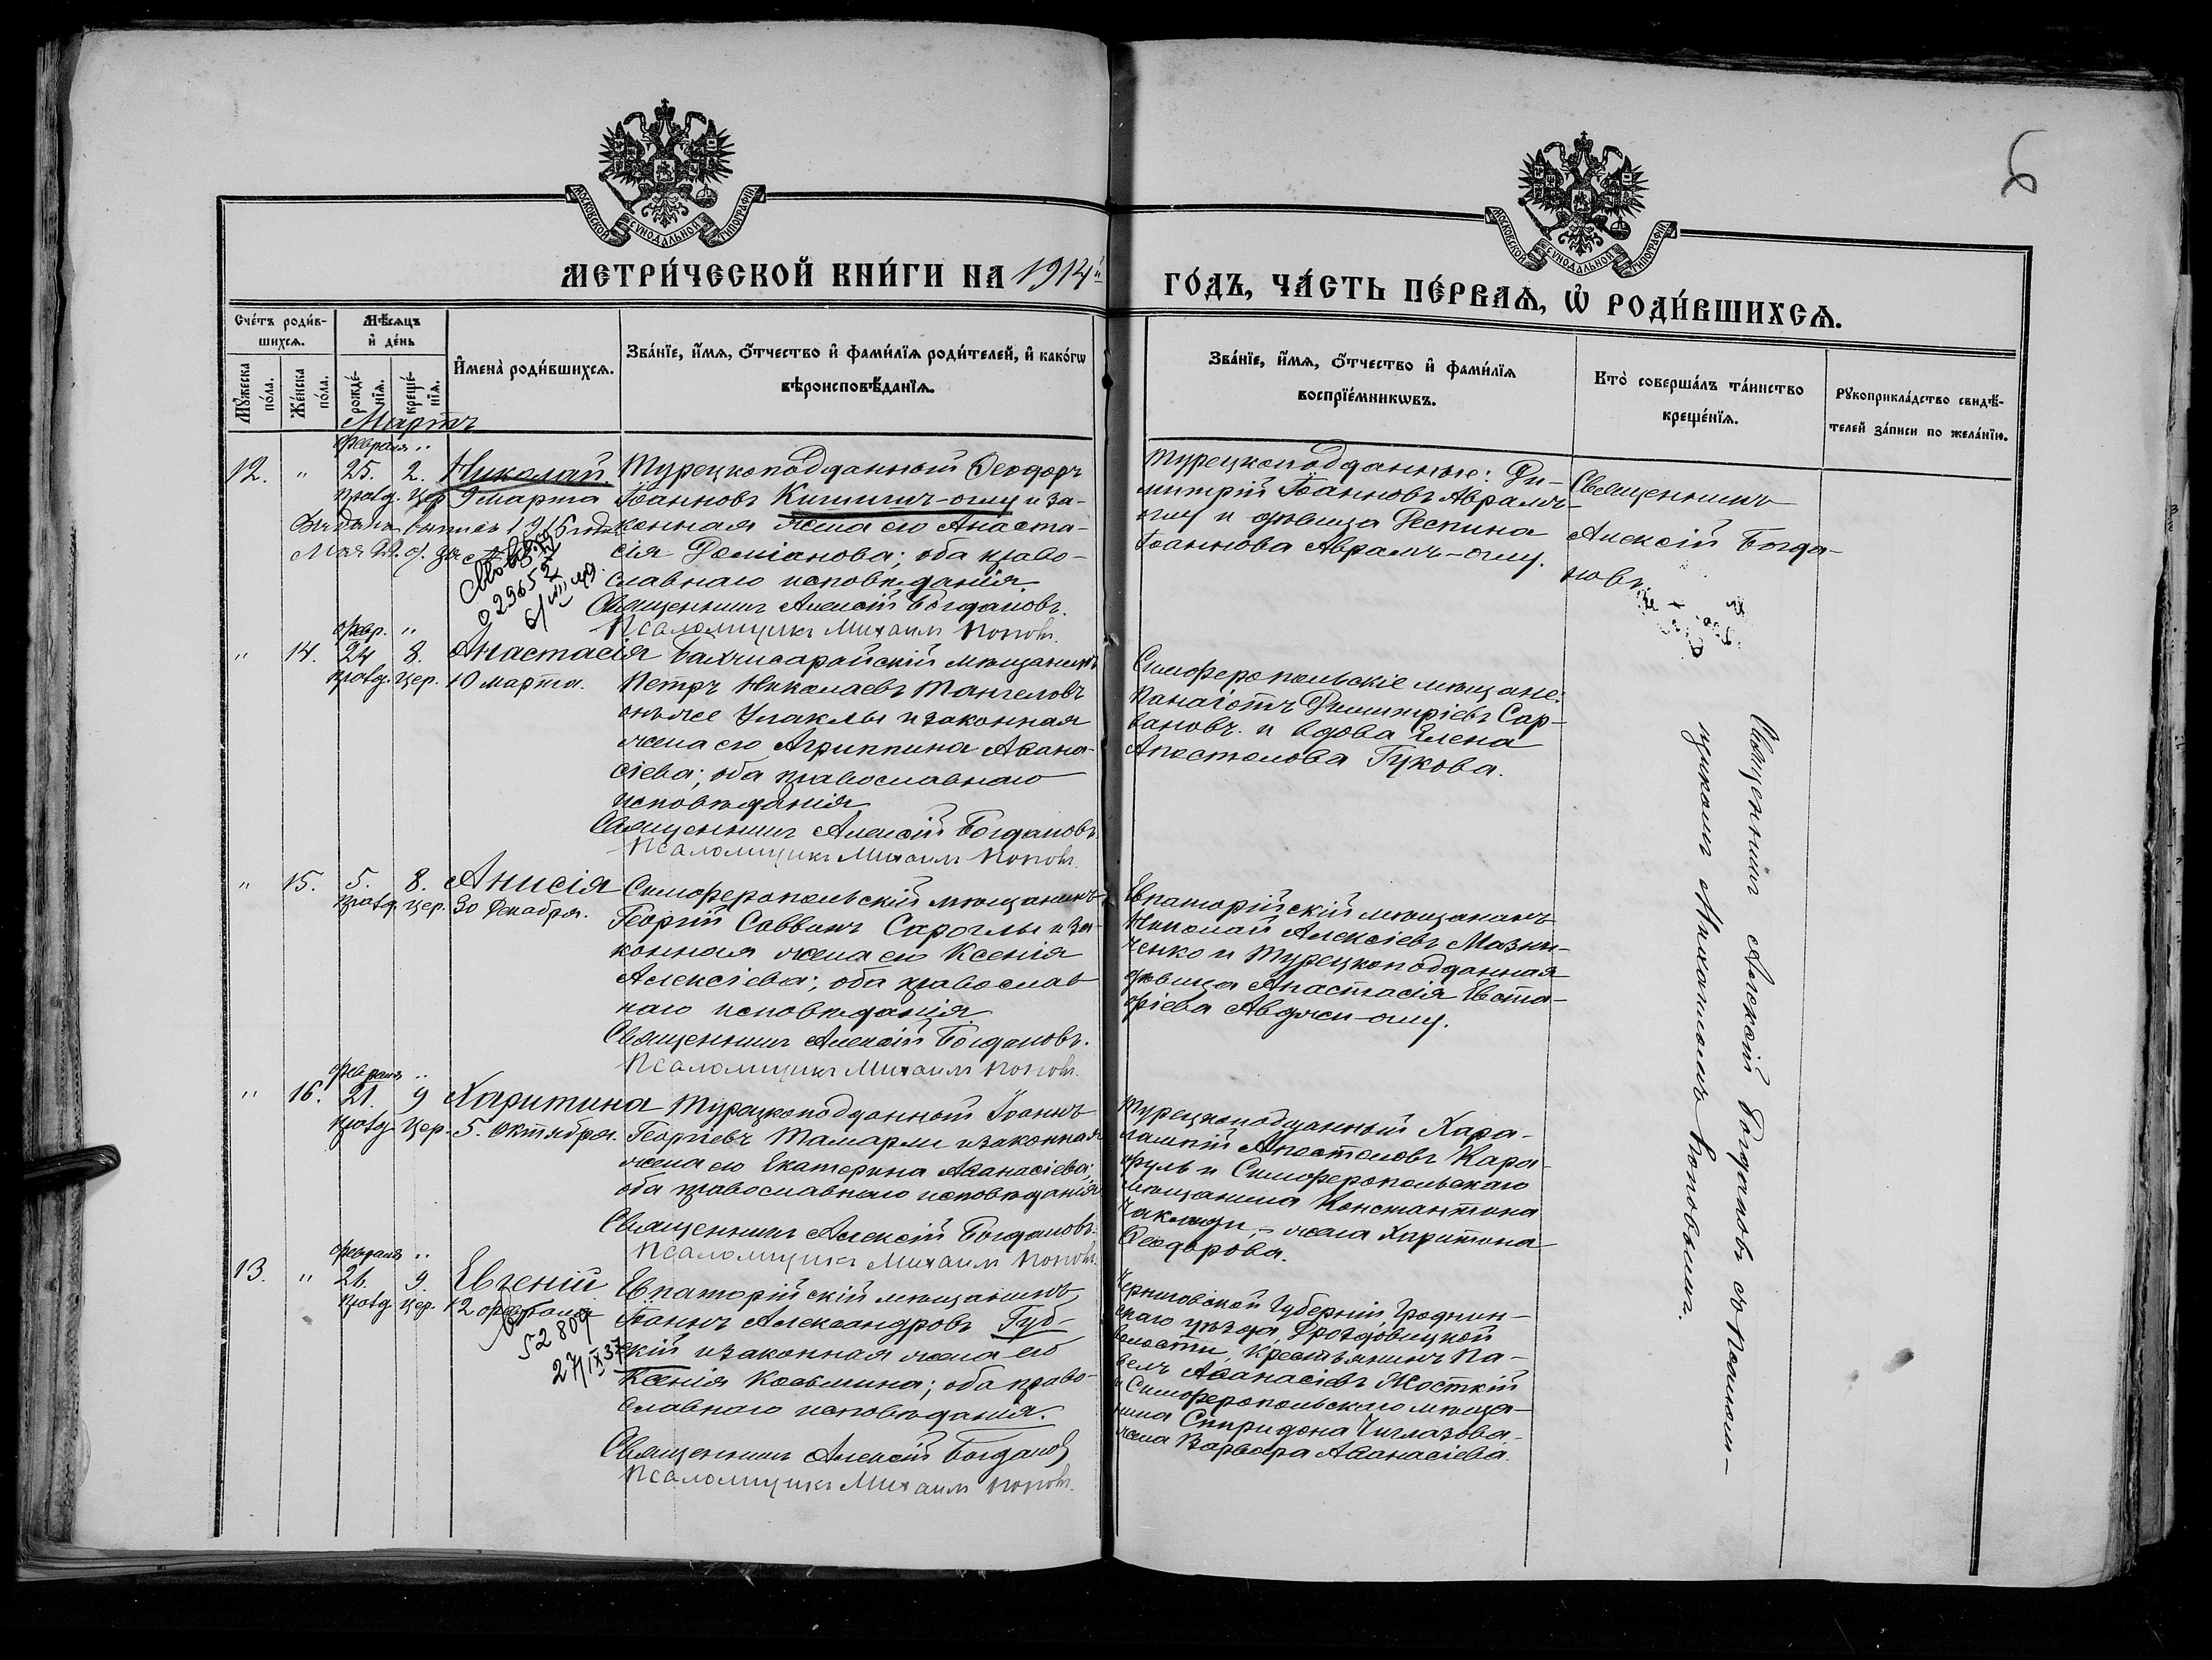 6
МОСКОВСКОЙ СѴНОДАЛЬНОЙ ТИПОГРАФІИ
МОСКОВСКОЙ СѴНОДАЛЬНОЙ ТИПОГРАФІИ
МЕТРИ́ЧЕСКОЙ КНИ́ГИ НА 1914й
ГО́ДЪ, ЧА́СТЬ ПЕ́РВАѦ, Ѡ҆ РОДИ́ВШИХСѦ.
Сче́тъ роди́в-
шихсѧ.
Мꙋ́жеска по́ла.
Же́нска по́ла.
Мѣ́сѧцъ
и҆ де́нь
рожде́-
нїѧ.
креще́-
нїѧ.
И҆мена̀ роди́вшихсѧ.
Зва́нїе, и҆́мѧ, ѻ҆́тчество и҆ фами́лїѧ роди́телей, и҆ како́гѡ
вѣроисповѣ́данїѧ.
Зва́нїе, и҆́мѧ, ѻ҆́тчество и҆ фами́лїѧ
воспрїе́мникѡвъ.
Кто̀ соверша́лъ та́инство
креще́нїѧ.
Рꙋкоприкла́дство свидѣ́-
телей за́писи по жела́нїю.
Мартъ
Февраля "
12. " 25. 2. Николай
правд. Цер. 9 марта
выпись 1916 года
Мая 22
029652
6/VIII 49.
Турецкоподданный Ѳеодоръ
Іоанновъ Кишичъ-оглу и за-
конная жена его Анаста-
сія Даміанова; оба право-
славнаго исповѣданія
Священникъ Алексій Богдановъ.
Псаломщикъ Михаилъ Поповъ.
Турецкоподданные: Ди-
митрій Іоанновъ Аврамъ-
оглу и дѣвица Деспина
Іоаннова Аврамъ-оглу.
Священникъ
Алексій Богда-
новъ.
Февр. "
" 14. 24 8. Анастасія
правд. Цер. 10 марта.
Бахчисарайскій мѣщанинъ
Петръ Николаевъ Тангеловъ
онъ же Улаклы и законная
жена его Агриппина Аѳана-
сіева; оба православнаго
исповѣданія
Священникъ Алексій Богдановъ.
Псаломщикъ Михаилъ Поповъ.
Симферопольскіе мѣщане:
Панаіотъ Димитріевъ Сар-
вановъ и вдова Елена
Апостолова Гукова.
" 15. 5. 8. Анисія
правд. Цер. 30 Декабря.
Симферопольскій мѣщанинъ
Георгій Саввинъ Сароглы и за-
конная жена его Ксенія
Алексіева; оба православ
наго исповѣданія.
Священникъ Алексій Богдановъ.
Псаломщикъ Михаилъ Поповъ.
Евпаторійскій мѣщанинъ
Николай Алексіевъ Мазни-
ченко и Турецкоподданная
дѣвица Анастасія Евста-
фіева Авджи-оглу.
Февраля "
" 16. 21. 9 Харитина
правд. Цер. 5. Октября.
Турецкоподданный Іоаннъ
Георгіевъ Тамарли и законная
жена его Екатерина Аѳанасіева;
оба православнаго исповѣданія
Священникъ Алексій Богдановъ.
Псаломщикъ Михаилъ Поповъ.
Турецкоподданный Хара-
лампій Апостоловъ Кара-
фуль и Симферопольскаго
мѣщанина Константина
жена Харитина
Ѳеодорова.
Февраля "
13. " 26. 9. Евгеній
правд. Цер. 12 февраля
52809
27/IX 37
Евпаторійскій мѣщанинъ
Іоаннъ Александровъ Губ-
скій и законная жена его
Ксенія Косьмина; оба право-
славнаго исповѣданія.
Священникъ Алексій Богдановъ
Псаломщикъ Михаилъ Поповъ.
Черниговской Губерніи, Гроднин-
скаго уѣзда, Дроздовицкой
волости, крестьянинъ Па-
велъ Аѳанасіевъ Мосткій
и Симферопольскаго мѣща-
нина Спиридона Чиглазова
жена Варвара Аѳанасіева.
Священникъ Алексій Богдановъ съ Псалом-
щикомъ Михаиломъ Поповымъ.